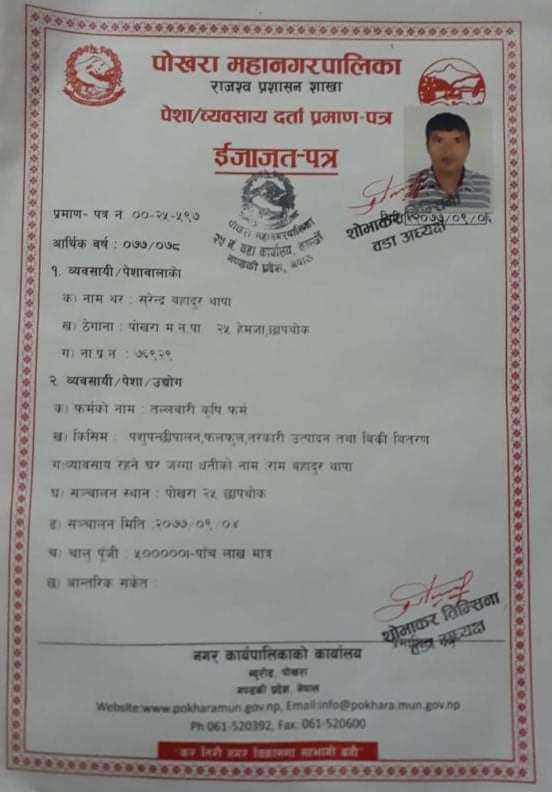 पोखरा महानगरपालिका
राजश्व प्रशासन शाखा
पेशा/व्यवसाय दर्ता प्रमाण-पत्र
ईजाजत-पत्र
प्रमाण- पत्र नं ००-२५-५९७
मिति :२०७७/०९/०४
शोभाकर तिम्सिना
वडा अध्यक्ष
पोखरा महानगरपालिका
२५ नं. वडा कार्यालय,
गण्डकी प्रदेश, नेपाल
आर्थिक बर्ष : ०७७/०७८
१. व्यवसायी/पेशावालाको
क) नाम थर : सुरेन्द्र बहादुर थापा
ख) ठेगाना : पोखरा म.न.पा २५ हेमजा,छापचोक
ग) ना.प्र.नं : ७६९२९
२. व्यवसायी/पेशा/उद्योग
क) फर्मको नाम : तल्लबारी कृषि फर्म
ख) किसिम : पशुपन्छीपालन,फलफुल,तरकारी उत्पादन तथा बिक्री बितरण
ग)व्यावसाय रहने घर जग्गा धनीको नाम :राम बहादुर थापा
घ) सञ्चालन स्थान : पोखरा २५ छापचोक
ङ) सञ्चालन मिति :२०७७/०९/०४
च) चालु पूँजी : ५०००००।-पाँच लाख मात्र
छ) आन्तरिक संकेत :
शोभाकर तिम्सिना
वडा अध्यक्ष
नगर कार्यपालिकाको कार्यालय
न्यूरोड, पोखरा
गण्डकी प्रदेश, नेपाल
Website:www.pokharamun.gov.np, Email:info@pokhara.mun.gov.np
Ph 061-520392, Fax: 061-520600
"कर तिरौं नगर विकासमा सहभागी बनौं"